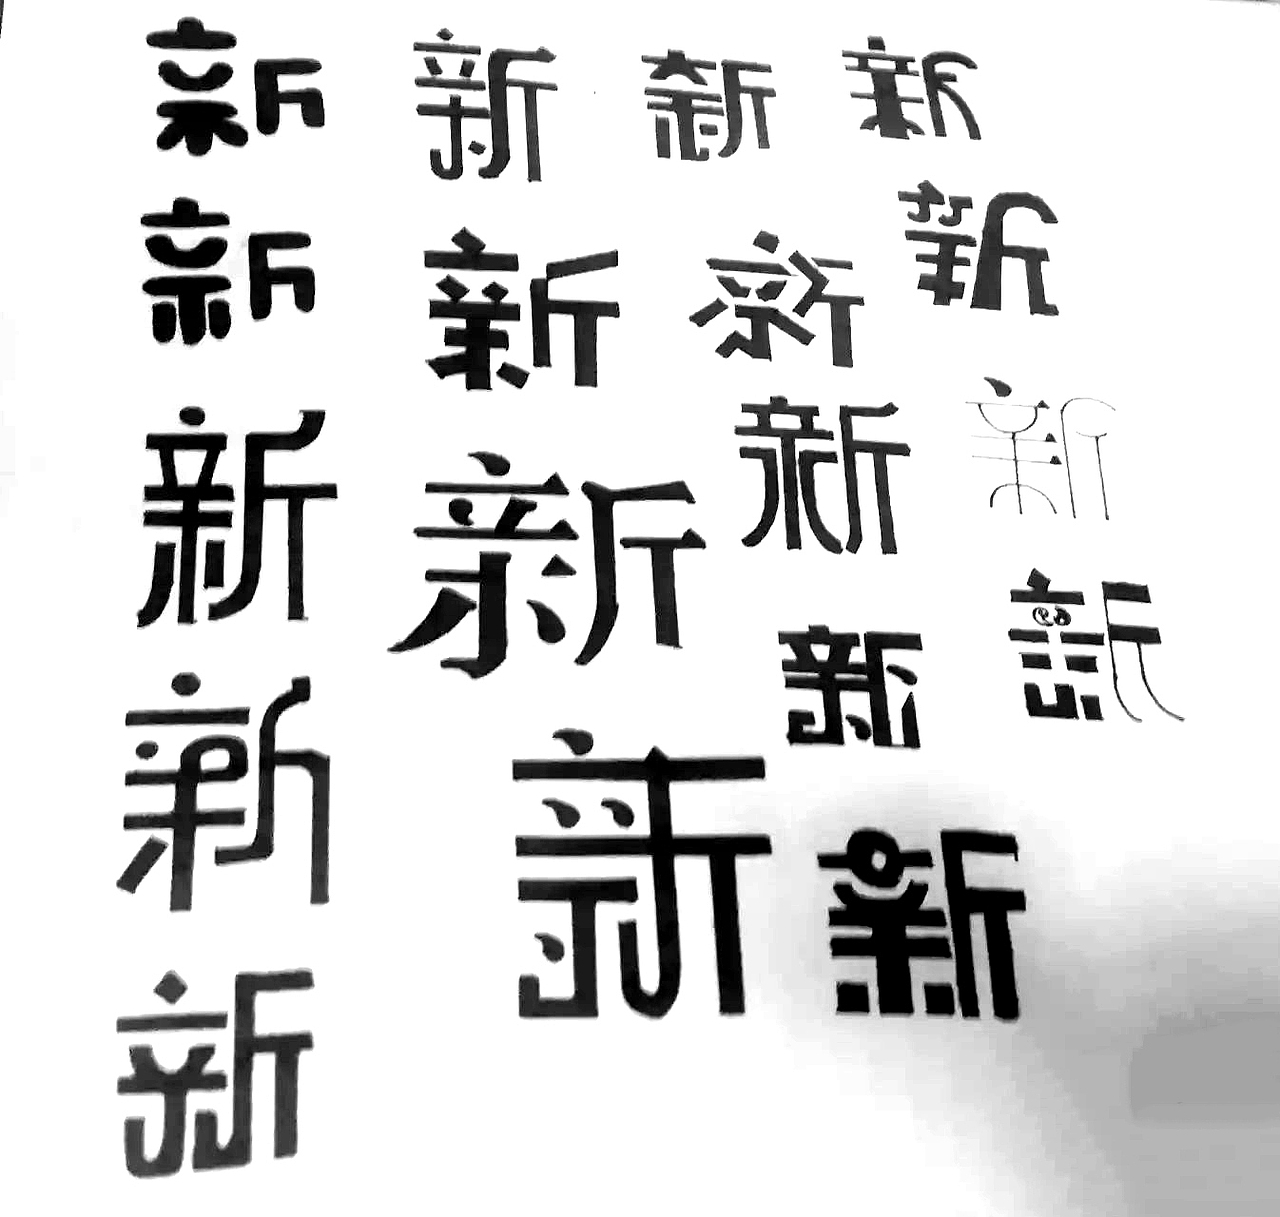 新 新 新 新
新 新 新 新
新 新 新 新
新 新 新 新
新 新